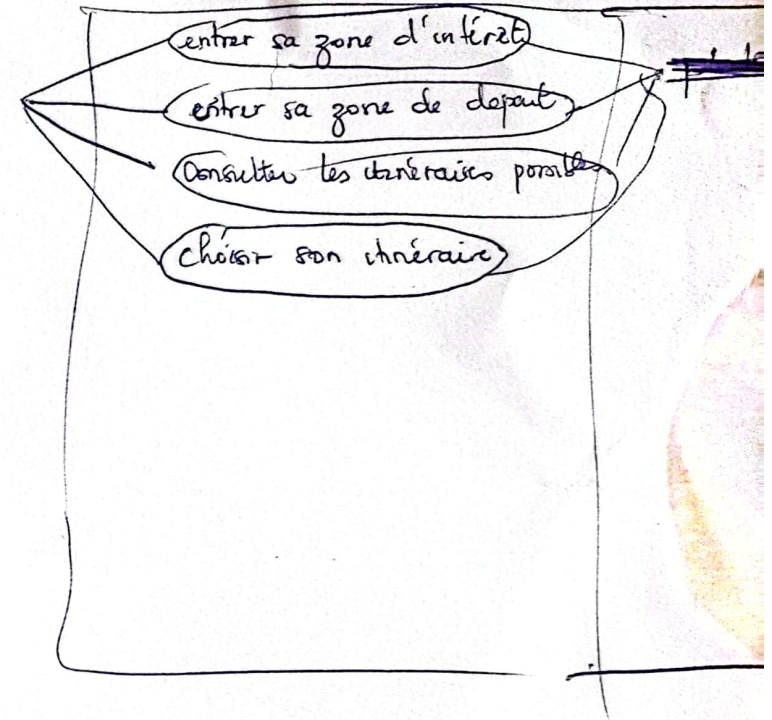 entrer sa zone d'intérêt
entrer sa zone de depart
Consulter les itinéraires possibles
choisir son itinéraire